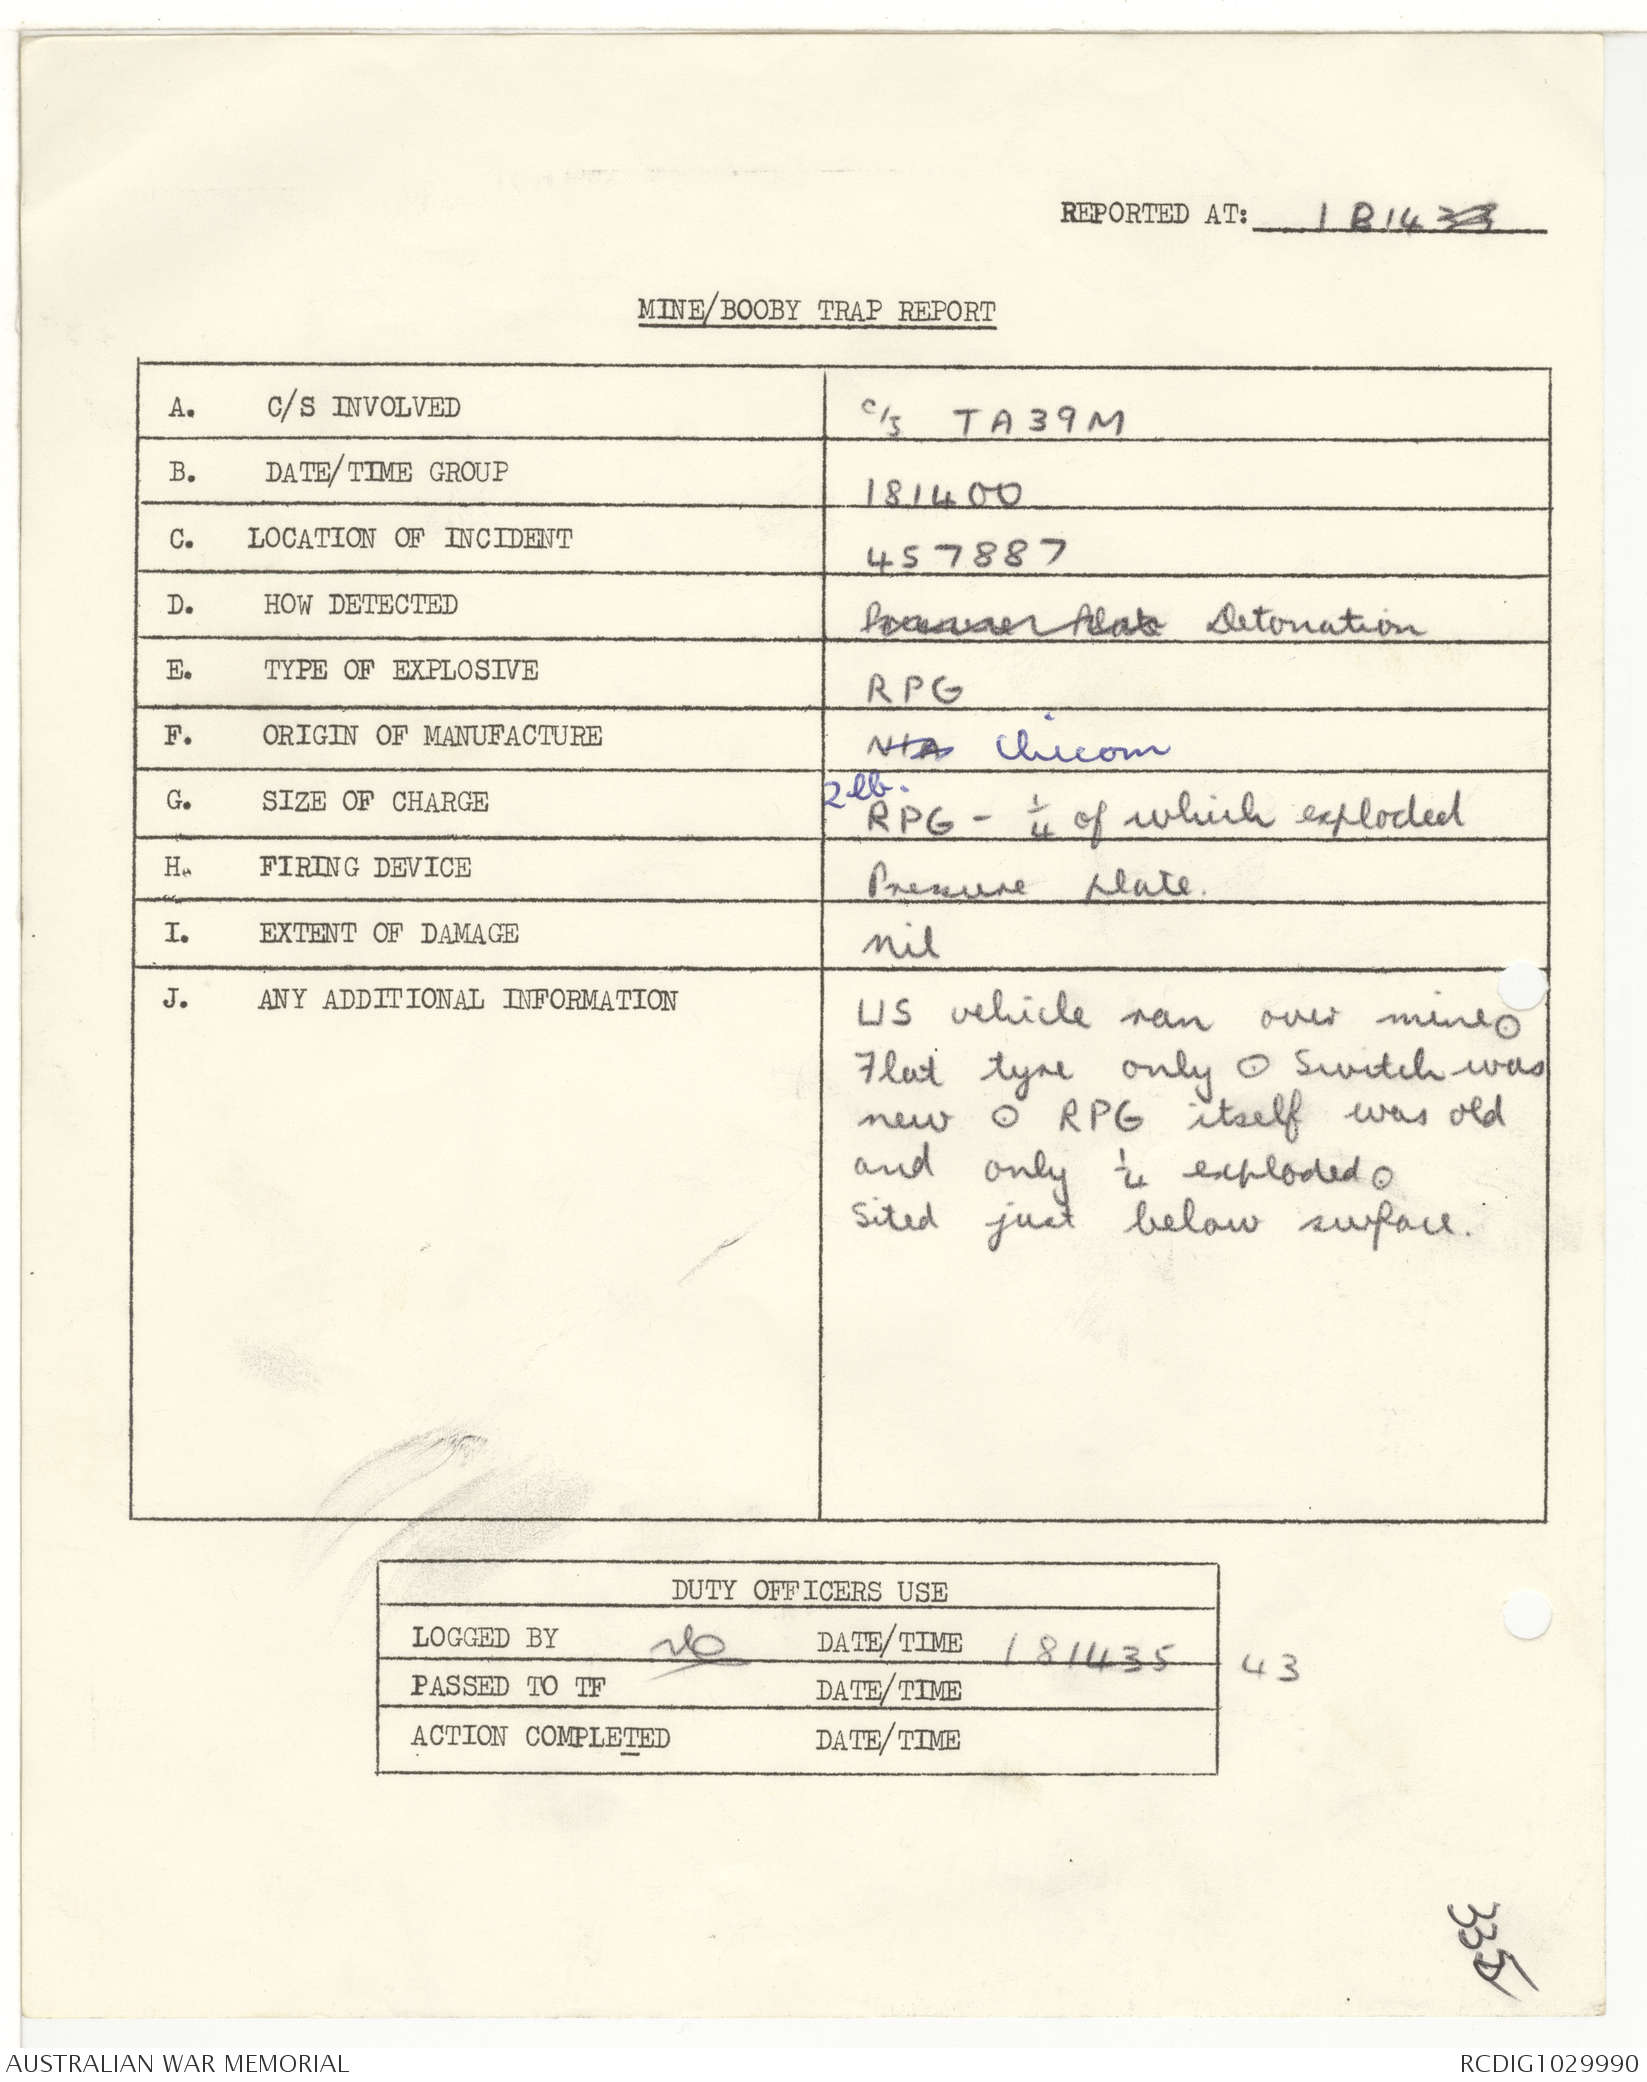 REPORTED AT: 1814
MINE/BOOBY TRAP REPORT
A. C/S INVOLVED C/S TA39M
B. DATE/TIME GROUP 181400
C. LOCATION OF INCIDENT 457887
D. HOW DETECTED Pressure Plate Detonation
E. TYPE OF EXPLOSIVE RPG
F. ORIGIN OF MANUFACTURE N/A Chicom
G. SIZE OF CHARGE 2 lb. RPG - 1/4 of which exploded
H. FIRING DEVICE Pressure plate.
I. EXTENT OF DAMAGE nil
J. ANY ADDITIONAL INFORMATION US vehicle ran over mine⊙
Flat tyre only ⊙ Switch was
new ⊙ RPG itself was old
and only 1/4 exploded⊙
Sited just below surface.
DUTY OFFICERS USE
LOGGED BY DATE/TIME 181435 43
PASSED TO TF DATE/TIME
ACTION COMPLETED DATE/TIME
335
AUSTRALIAN WAR MEMORIAL RCDIG1029990